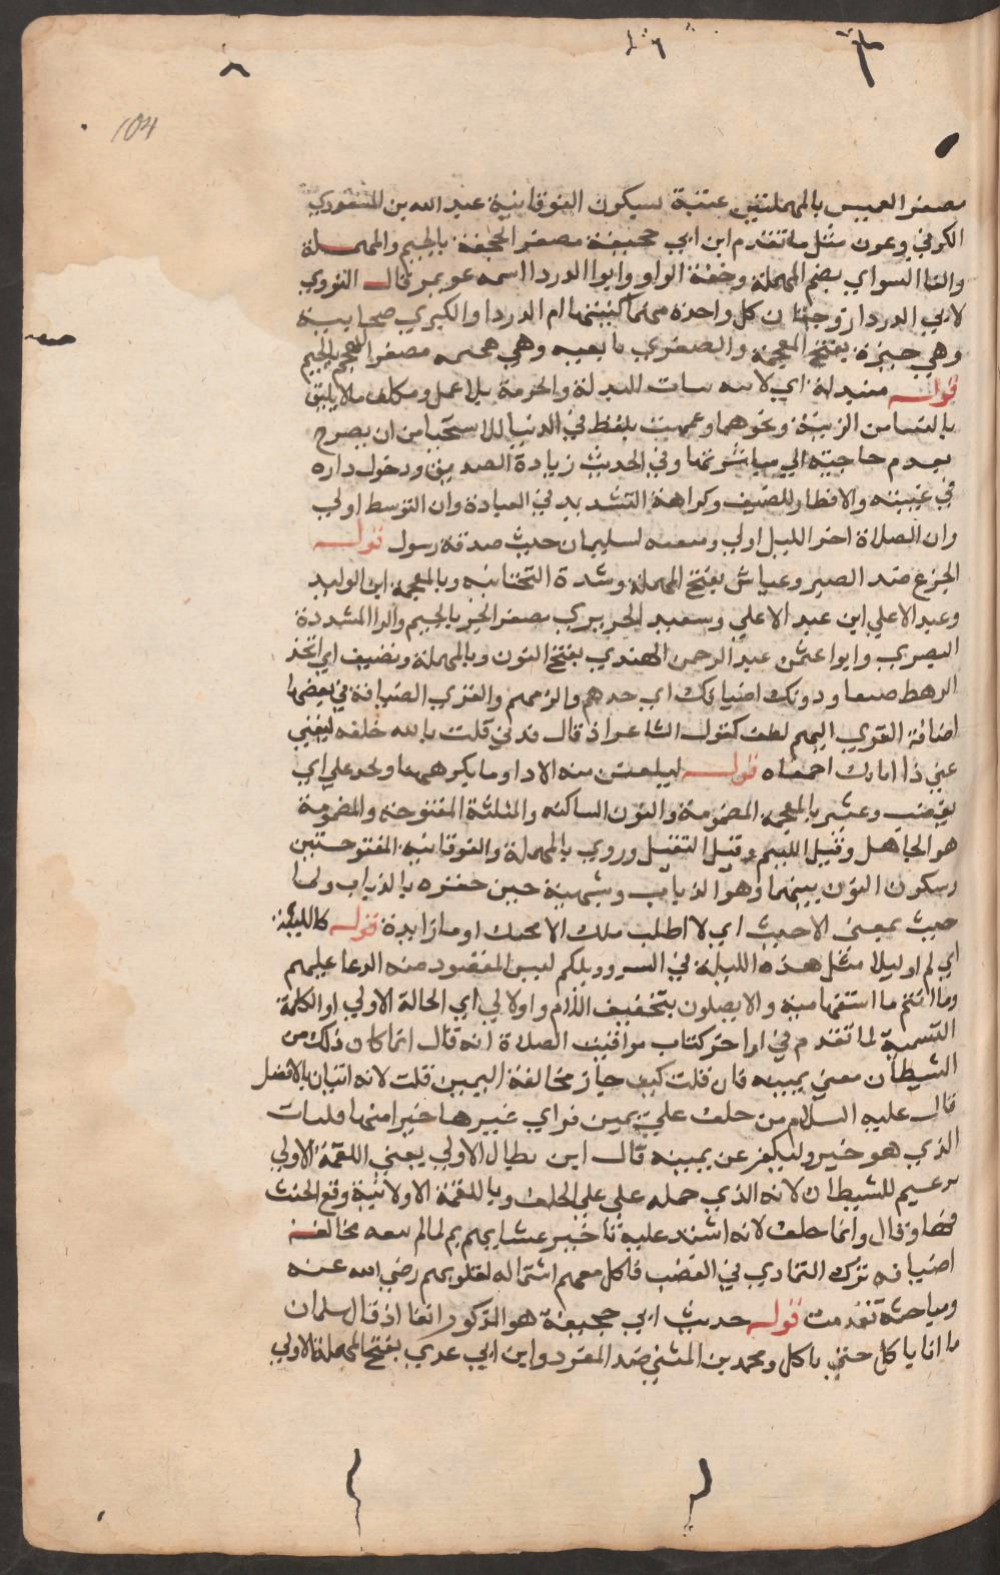 104
مصغر العميس بالمهملتين عتبة بسكون الفوقانية عبد الله بن المسعودي
الكوفي وعون مثل ما تقدم ابن ابي جحيفة مصغر الجحفة بالجيم والمهملة
والفا السواي بضم المهملة وخفة الواو وابوا الدردا اسمه عويمر قال النووي
لابي الدردا زوجتان كل واحدة منهما كنيتها ام الدردا والكبري صحابية
وهي خيرة بفتح المعجمة والصغري تابعيه وهي هجيمه مصغر الهجم بالجيم
قوله متبدلة اي لابسه ثياب البدلة والخدمة بلا عمل وتكلف ما يليق
بالنسا من الزينة ونحوهما وعممت بلفظ في الدنيا للاستحيا من ان يصرح
بعدم حاجته الي مباشرتها وفي الحديث زيادة الصديق ودخول داره
في غيبته والافطار للضيف وكراهة التشديد في العبادة وان التوسط اولي
وان الصلاة اخر الليل اولي ومنقبه لسليمان حديث صدقه رسول قوله
الجزع ضد الصبر وعياش بفتح المهملة وشدة التحتانيه وبالمعجمة ابن الوليد
وعبد الاعلي ابن عبد الاعلي وسعيد الجريري مصغر الجر بالجيم والرا المشددة
البصري وابوا عثمن عبد الرحمن الهندي بفتح النون وبالمهملة وتضيف اي اتخذ
الرهط ضيفا ودونك اضيافك اي خدهم والزمهم والقري الضيافة في بعضها
اضافة القري اليهم لطف كقول الشاعر اذ قال قدني قلت بالله حلفه ليغني
عني ذا انايك اجمعاه قوله ليلقين منه الاذا وما يكرههما ويجد علي اي
يغضب وعنثر بالمعجمة المضمومة والنون الساكنه والمثلثة المفتوحة والمضمومة
هو الجاهل وقيل اللييم وقيل الثقيل وروي بالمهملة والفوقانيه المفتوحتين
وسكون النون بينهما وهو الذباب وشبهه حين حقره بالذباب ولما
حيث بمعني الاحديث اي لا اطلب منك الا محبك او ما زايدة قوله كالليلة
اي لم ار ليلا مثل هذه الليلة في السرور ويلكم ليس المقصود منه الدعا عليهم
وما انتم ما استفهامية والا يصلون بتخفيف اللام واولا لي اي الحالة الاولي او الكلمة
التسمية لما تقدم في اواخر كتاب مواقيت الصلاة انه قال انما كان ذلك من
الشيطان معني يمينه فان قلت كيف جاز مخالفة اليمين قلت لانه اتيان بالافضل
قال عليه السلام من حلف علي يمين فراي غيرها خيرا منها فليات
الذي هو خير وليكفر عن يمينه قال ابن بطال الاولي يعني اللقمة الاولي
ترغيم للشيطان لانه الذي حمله علي علي الحلف وباللقمة الاولانية وقع الحنث
فيها وقال وانما حلف لانه اشتد عليه تاخير عشايهم ثم لما لم يسعه مخالفة
اضيافه ترك التمادي في الغضب فاكل معهم اشتماله لقلوبهم رضي الله عنه
ومباحثه تقدمت قوله حديث ابي جحيفة هو المذكور انفا اذ قال سلمان
ما انا باكل حتي تاكل ومحمد بن المثني ضد المفرد وابن ابي عدي بفتح المهملة الاولي